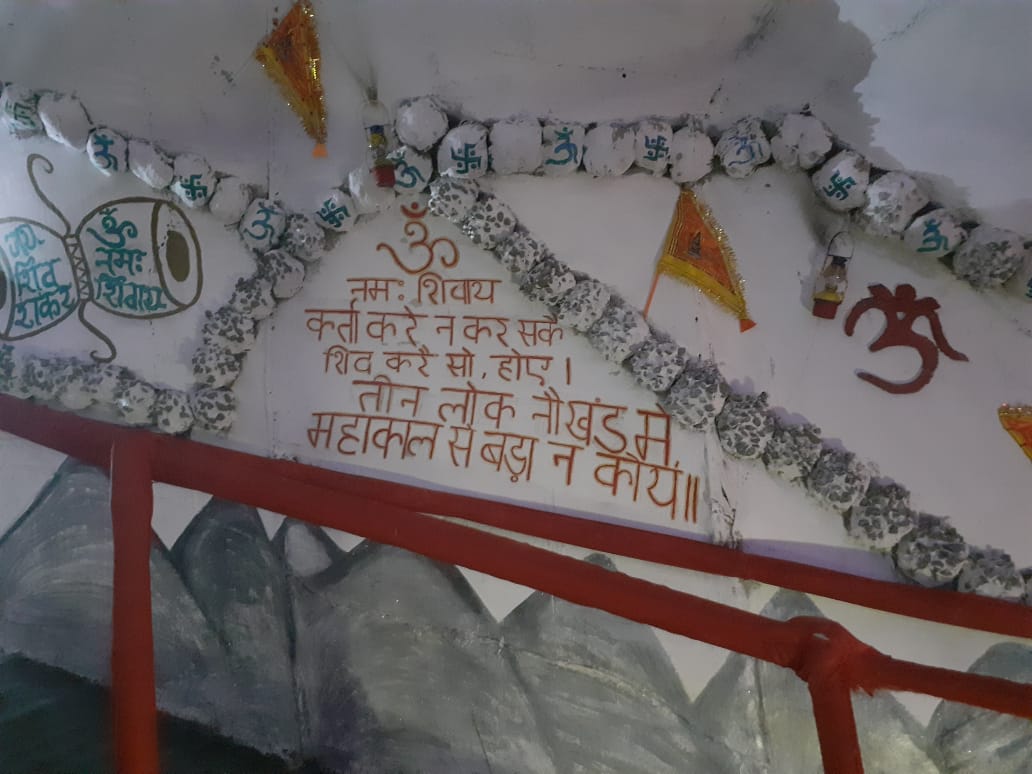 जय
शिव
शंकर
ॐ
नमः
शिवाय
ॐ
नमः शिवाय
कर्ता करे न कर सके
शिव करे सो, होए।
तीन लोक नौखंड में,
महाकाल से बड़ा न कोय॥
ॐ